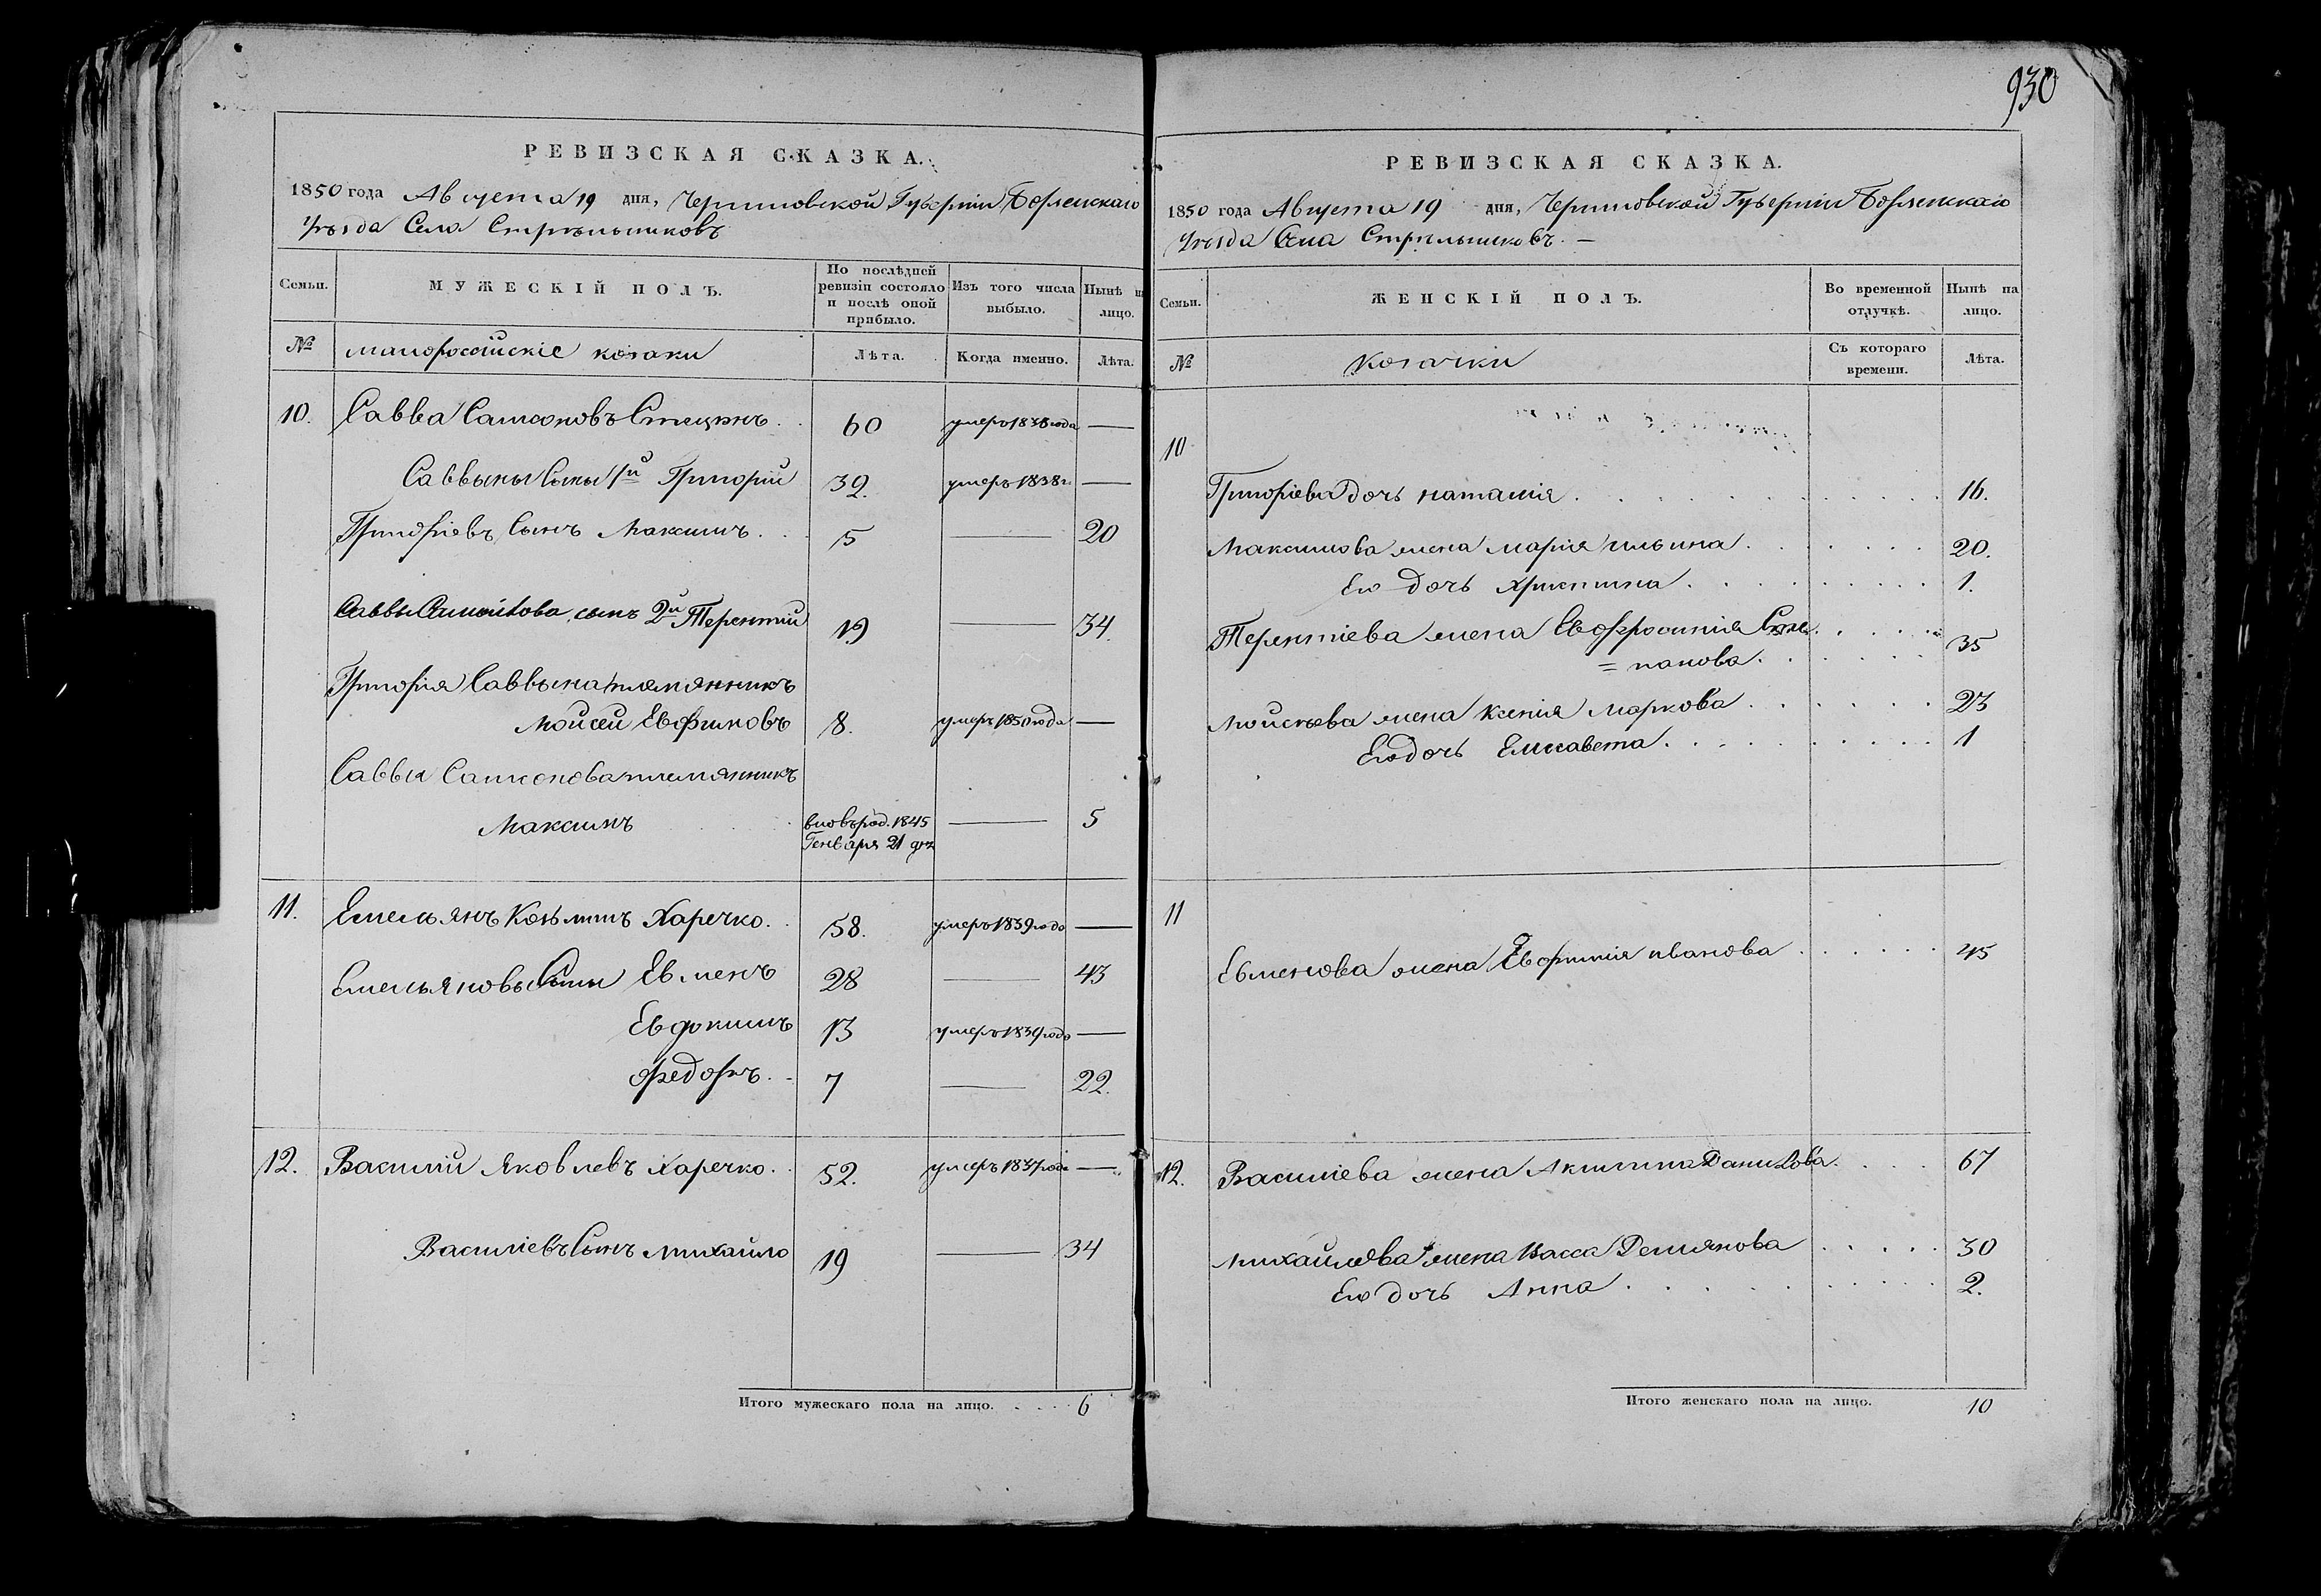 930
РЕВИЗСКАЯ СКАЗКА.
1850 года Августа 19 дня, Черниговской Губерніи Борзенскаго
Уѣзда Села Стрѣльниковъ
Семьи.
МУЖЕСКІЙ ПОЛЪ.
По послѣдней ревизіи состояло и послѣ оной прибыло.
Изъ того числа выбыло.
Нынѣ на лицо.
№ малороссійскіе козаки Лѣта. Когда именно. Лѣта.
10. Савва Самсоновъ 60 умеръ 1838 года —
Саввины Сыны 1й Григорій 32. умеръ 1838 г. —
Григоріевъ Сынъ Максимъ 5 — 20
Саввы Самсонова сынъ 2й Терентій 19 — 34.
Григорія Саввина племянникъ
Мойсей Евфимовъ 8. умеръ 1850 года —
Саввы Самсонова племянникъ
Максимъ вновь род. 1845 — 5
Генваря 21 дня
11. Емельянъ Козьминъ Харечко. 58. умеръ 1839 года —
Емельяновы Сыны Евменъ 28 — 43
Евдокимъ 13 умеръ 1839 года —
Федоръ. 7 — 22.
12. Василій Яковлевъ Харечко. 52. умеръ 1837 года —
Василіевъ Сынъ Михайло 19 — 34
Итого мужескаго пола на лицо. 6
РЕВИЗСКАЯ СКАЗКА.
1850 года Августа 19 дня, Черниговской Губерніи Борзенскаго
Уѣзда Села Стрѣльниковъ. —
Семьи.
ЖЕНСКІЙ ПОЛЪ.
Во временной отлучкѣ.
Нынѣ на лицо.
№ Козачки Съ котораго времени. Лѣта.
10
Григоріева дочь Наталія 16.
Максимова жена Марія Ильина 20.
Его дочь Христина 1.
Терентіева жена Евфросинія Сте
= панова 35
Мойсѣева жена Ксенія Маркова 23
Его дочь Елисавета 1
11
Евменова жена Евфимія Иванова 45
12. Василіева жена Акилина Данилова 67
Михайлова жена Васса Демянова 30
Его дочь Анна 2.
Итого женскаго пола на лицо. 10